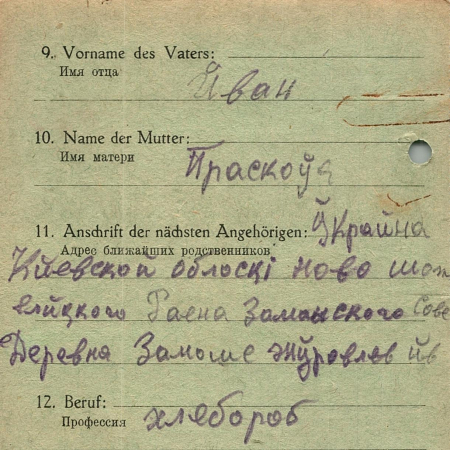 9. Vorname des Vaters:
Имя отца
Йван
10. Name der Mutter:
Имя матери
Праскоўя
11. Anschrift der nächsten Angehörigen: Ўкрайна
Адрес ближайших родственников
Кйевской облоскі ново шом
елйцкого Раена Заманского Сове
Деревня Замоше жўровлев йв
12. Beruf:
Профессия
хлябороб